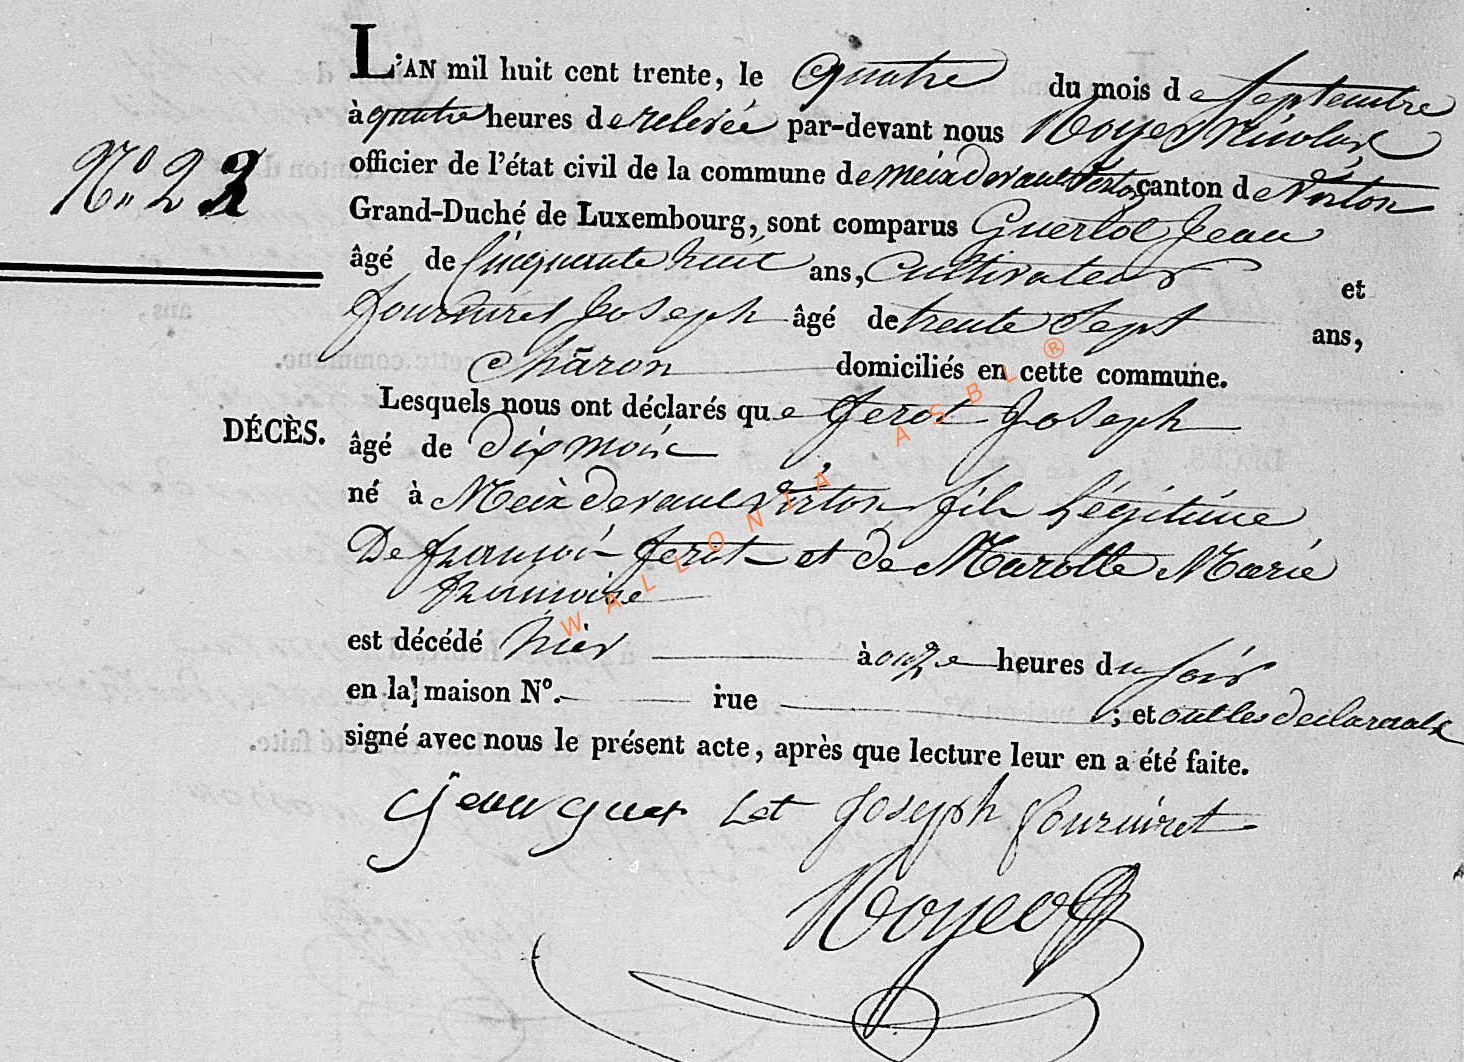 L'AN mil huit cent trente, le quatre du mois de Septembre
à quatre heures de relevée par-devant nous Noyer Nicolas
officier de l'état civil de la commune de meix devant Virton, canton de Virton
N° 22
Grand-Duché de Luxembourg, sont comparus Guerlot Jean
âgé de Cinquante huit ans, Cultivateur et
fourniret Joseph âgé de trente Sept ans,
Charon domiciliés en cette commune.
Lesquels nous ont déclarés que ferot Joseph
DÉCÈS.
âgé de Dix mois
né à Meix devant Virton, fils Légitime
De françois ferot et de Marotte Marie
françoise
est décédé hier à onze heures du soir
en la maison N°. rue ; et ont les declarants
signé avec nous le présent acte, après que lecture leur en a été faite.
jean guer Lot Joseph fourniret
Noyer
WALLONIA ASBL ®